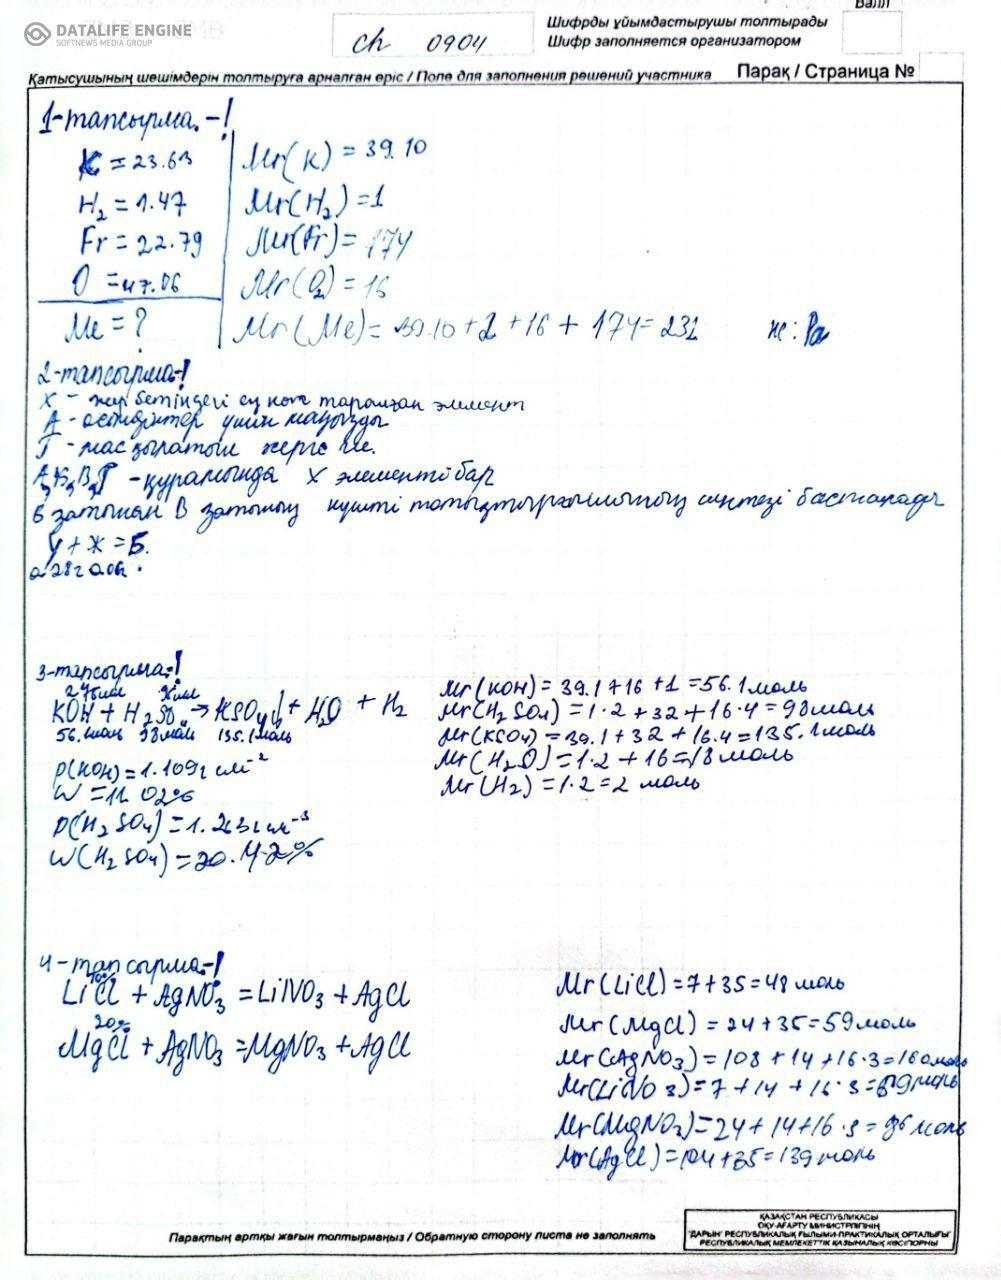 DATALIFE ENGINE
SOFTNEWS MEDIA GROUP
ch 0904
Шифрды ұйымдастырушы толтырады
Шифр заполняется организатором
Балл
Қатысушының шешімдерін толтыруға арналған өріс / Поле для заполнения решений участника
Парақ / Страница №
1-тапсырма.-!
K = 23.63
H₂ = 1.47
Fr = 22.79
O = 47.06
Me = ?
Mr(K) = 39.10
Mr(H₂) = 1
Mr(Fr) = 174
Mr(O₂) = 16
Mr(Me) = 39.10 + 2 + 16 + 174 = 232
ж: Ra
2-тапсырма-!
X - жер бетіндегі ең көп таралған элемент
A - өсімдіктер үшін маңызды
Г - жасқыратын
-құрамында X элементі бар
Б затынан В затының күшті синтезі басталады
У + Ж = Б.
3-тапсырма-!
KOH + H₂SO₄ → KSO₄↓ + H₂O + H₂
56.1моль 98моль 135.1моль
ρ(KOH) = 1.109г см⁻²
W = 11.02%
ρ(H₂SO₄) = 1.263г см⁻³
W(H₂SO₄) = 20.42%
Mr(KOH) = 39.1 + 16 + 1 = 56.1моль
Mr(H₂SO₄) = 1·2 + 32 + 16·4 = 98моль
Mr(KSO₄) = 39.1 + 32 + 16.4 = 135.1моль
Mr(H₂O) = 1·2 + 16 = 18моль
Mr(H₂) = 1·2 = 2 моль
4-тапсырма-!
10%
LiCl + AgNO₃ = LiNO₃ + AgCl
20%
MgCl + AgNO₃ = MgNO₃ + AgCl
Mr(LiCl) = 7 + 35 = 48 моль
Mr(MgCl) = 24 + 35 = 59моль
Mr(AgNO₃) = 108 + 14 + 16·3 = 160моль
Mr(LiNO₃) = 7 + 14 + 16·3 = 69моль
Mr(MgNO₃) = 24 + 14 + 16·3 = 86 моль
Mr(AgCl) = 104 + 35 = 139моль
Парақтың артқы жағын толтырмаңыз / Обратную сторону листа не заполнять
ҚАЗАҚСТАН РЕСПУБЛИКАСЫ
ОҚУ-АҒАРТУ МИНИСТРЛІГІНІҢ
"ДАРЫН" РЕСПУБЛИКАЛЫҚ ҒЫЛЫМИ-ПРАКТИКАЛЫҚ ОРТАЛЫҒЫ"
РЕСПУБЛИКАЛЫҚ МЕМЛЕКЕТТІК ҚАЗЫНАЛЫҚ КӘСІПОРНЫ